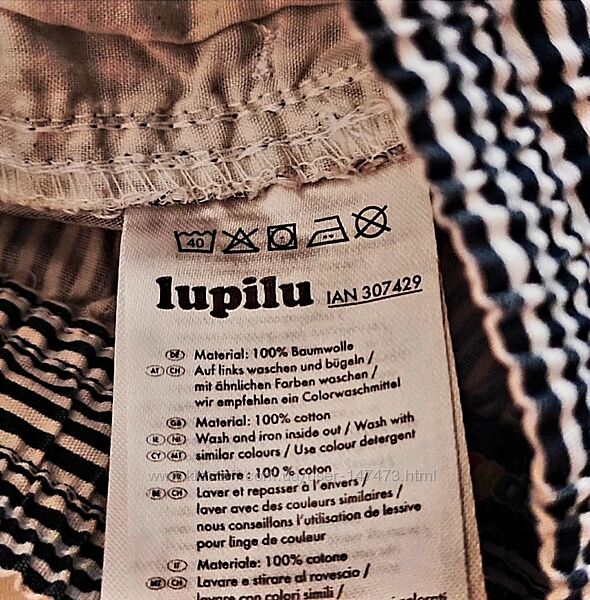 40
lupilu IAN 307429
DE Material: 100% Baumwolle
AT CH Auf links waschen und bügeln /
mit ähnlichen Farben waschen /
wir empfehlen ein Colorwaschmittel
GB Material: 100% cotton
IE NI Wash and iron inside out / Wash with
CY MT similar colours / Use colour detergent
FR Matière : 100 % coton
BE CH Laver et repasser à l'envers /
laver avec des couleurs similaires /
nous conseillons l'utilisation de lessive
pour linge de couleur
IT Materiale: 100% cotone
MT CH Lavare e stirare al rovescio /
lavare con colori simili /